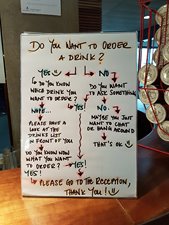 DO YOU WANT TO ORDER
A DRINK?
YES
NO
DO YOU KNOW
WHICH DRINK YOU
WANT TO ORDER?
DO YOU WANT
TO ASK SOMETHING
NOPE...
YES!
NO
PLEASE HAVE A
LOOK AT THE
DRINKS LIST
IN FRONT OF YOU
MAYBE YOU JUST
WANT TO CHAT
OR HANG AROUND
DO YOU KNOW NOW
WHAT YOU WANT
TO ORDER?
THAT'S OK
YES!
YES!
PLEASE GO TO THE RECEPTION,
THANK YOU!